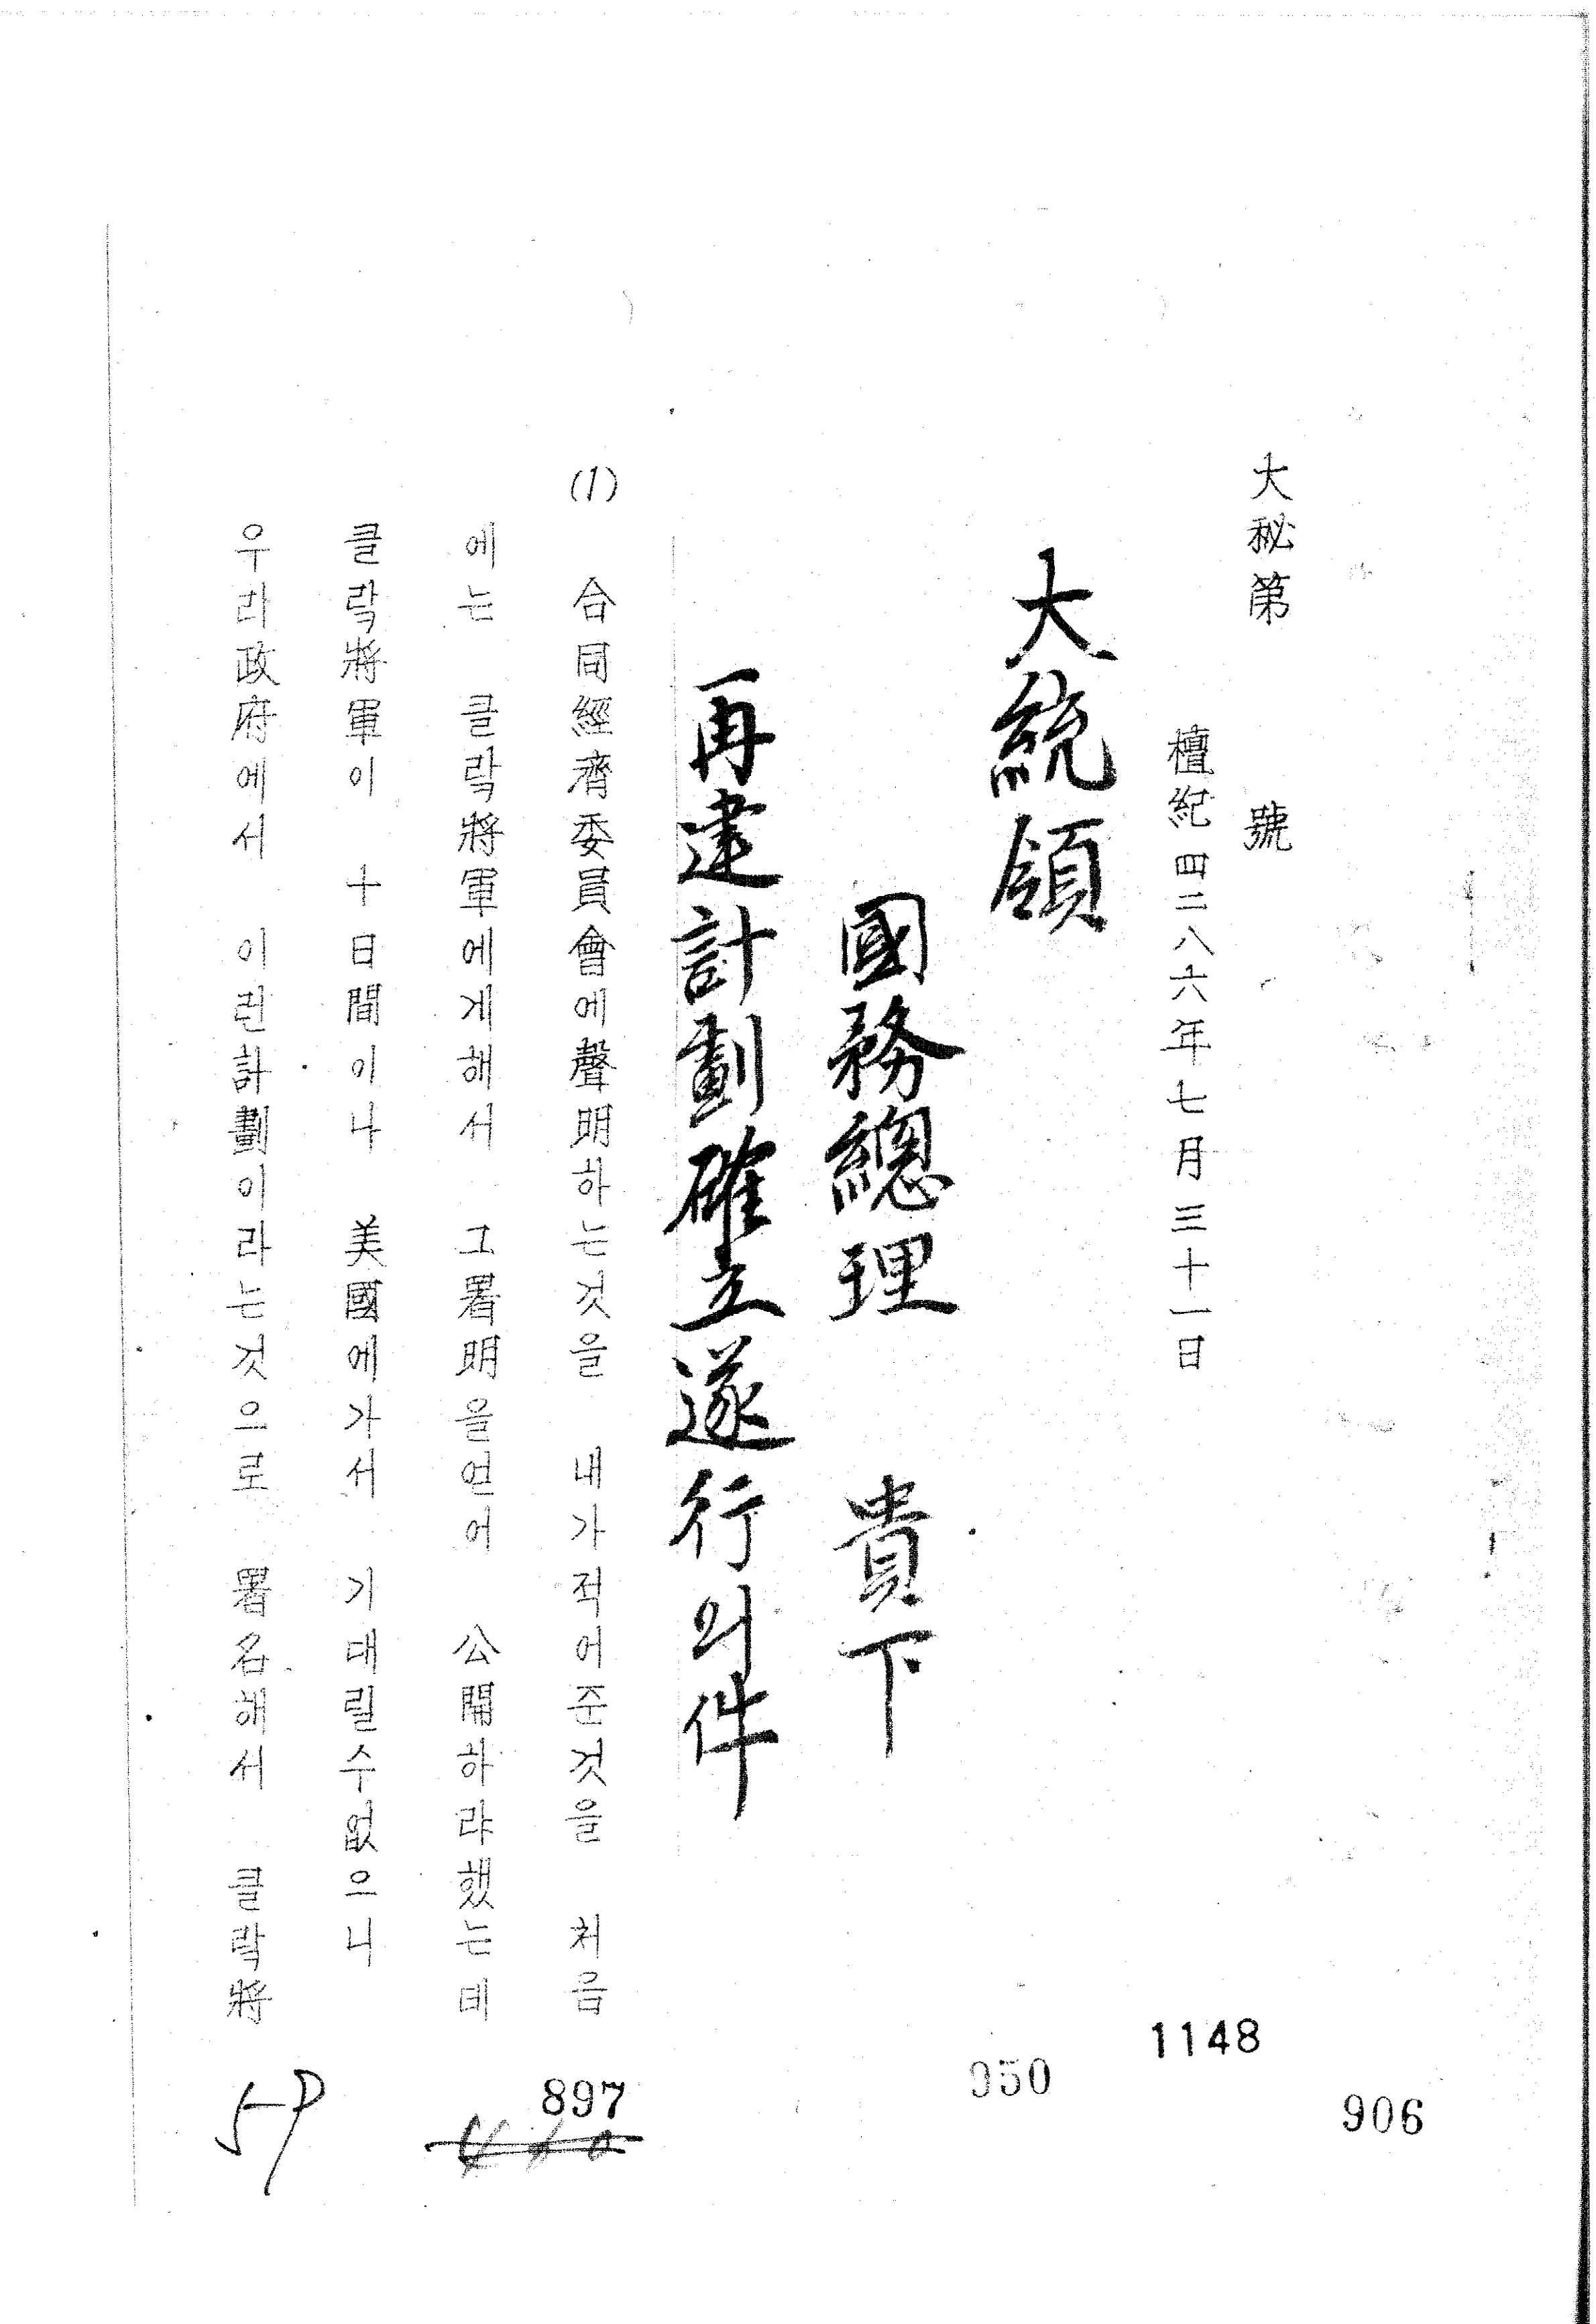 大秘第 號
檀紀 四二八六年 七月 三十一日
大統領
國務總理 貴下
再建計劃確立遂行의件
(1) 合同經濟委員會에聲明하는것을 내가적어준것을 처음
에는 클락將軍에게해서 그署明을얻어 公開하랴했는데
클락將軍이 十日間이나 美國에가서 기대릴수없으니
우리政府에서 이런計劃이라는것으로 署名해서 클락將
1148
906
950
897
5P